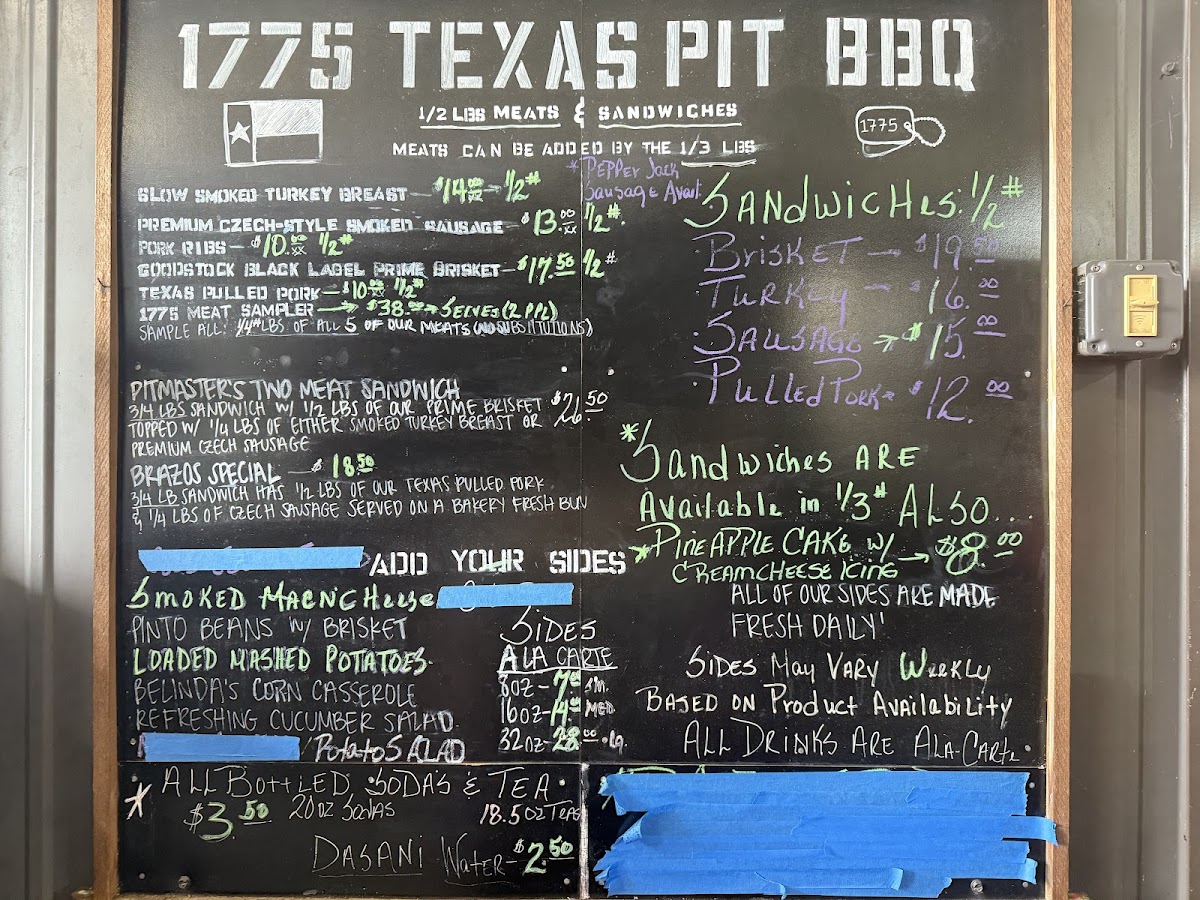 1775 TEXAS PIT BBQ
1/2 LBS MEATS & SANDWICHES
1775
MEATS CAN BE ADDED BY THE 1/3 LBS
* PEPPER JACK
SAUSAGE AVAIL.
SLOW SMOKED TURKEY BREAST — $14.00 — 1/2#
PREMIUM CZECH-STYLE SMOKED SAUSAGE — $13.00 1/2#.
PORK RIBS — $10.00 1/2#
GOODSTOCK BLACK LABEL PRIME BRISKET — $17.50 1/2#
TEXAS PULLED PORK — $10.00 1/2#
1775 MEAT SAMPLER → $38.00 → SERVES (2 PPL)
SAMPLE ALL: 1/4# LBS OF ALL 5 OF OUR MEATS (NO SUBSTITUTIONS)
PITMASTER'S TWO MEAT SANDWICH
3/4 LBS SANDWICH W/ 1/2 LBS OF OUR PRIME BRISKET $26.50
TOPPED W/ 1/4 LBS OF EITHER SMOKED TURKEY BREAST OR
PREMIUM CZECH SAUSAGE
BRAZOS SPECIAL — $18.50
3/4 LB SANDWICH HAS 1/2 LBS OF OUR TEXAS PULLED PORK
& 1/4 LBS OF CZECH SAUSAGE SERVED ON A BAKERY FRESH BUN
SANDWICHES: 1/2#
BRISKET → $19.50
TURKEY → $16.00
SAUSAGE → $15.00
PULLED PORK = $12.00
* SANDWICHES ARE
AVAILABLE IN 1/3# ALSO..
* PINEAPPLE CAKE W/ → $8.00
CREAMCHEESE ICING
ALL OF OUR SIDES ARE MADE
FRESH DAILY!
SIDES MAY VARY WEEKLY
BASED ON PRODUCT AVAILABILITY
ALL DRINKS ARE ALA-CARTE
ADD YOUR SIDES
SMOKED MACNCHEESE
PINTO BEANS W/ BRISKET
LOADED MASHED POTATOES
BELINDA'S CORN CASSEROLE
REFRESHING CUCUMBER SALAD
/POTATO SALAD
SIDES
A LA CARTE
8OZ - 7.00 SM.
16OZ - 14.00 MED
32OZ - 28.00 · LG.
* ALL BOTTLED SODA'S & TEA
$3.50 20 OZ SODAS 18.5 OZ TEAS
DASANI WATER - $2.50